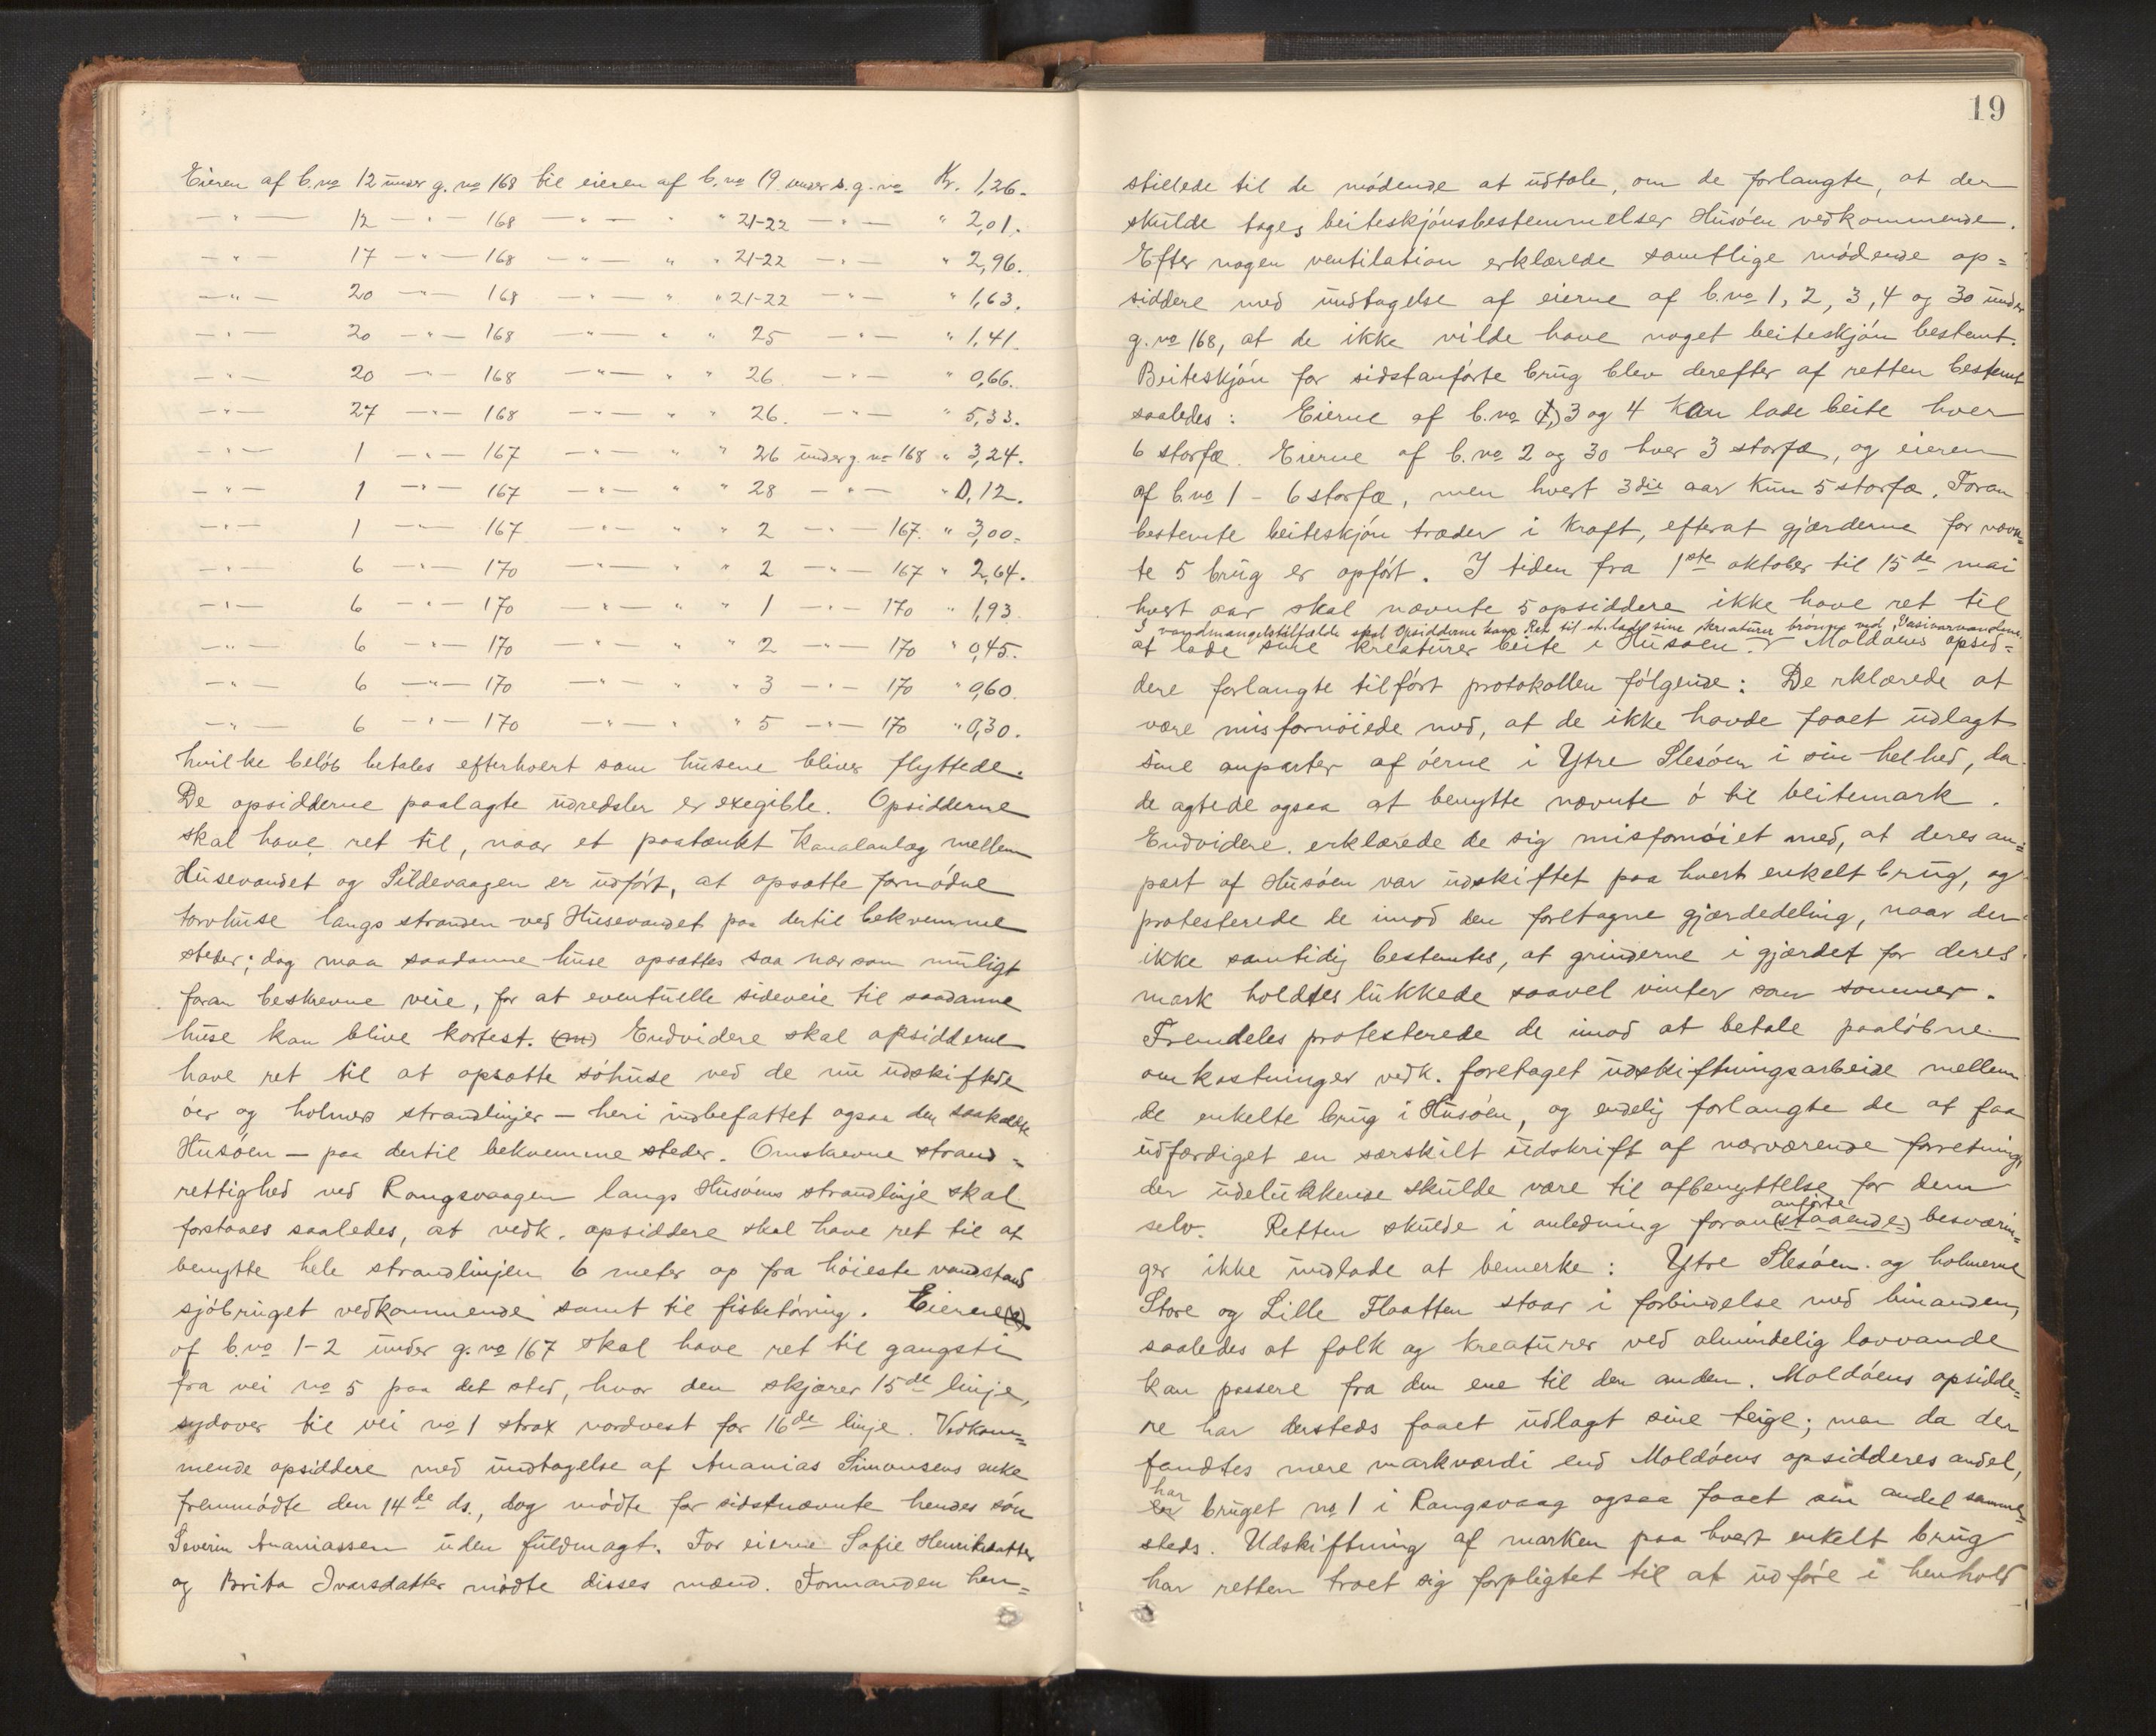 Eieren af b.no 12 under g.no 168 til eieren af b.no 19 under s.g.no Kr. 1,26.
— " — 12 — " — 168 — " — " " 21-22 — " — " 2,01.
— " — 17 — " — 168 — " — " " 21-22 — " — " 2,96.
— " — 20 — " — 168 — " — " " 21-22 — " — " 1,63.
— " — 20 — " — 168 — " — " " 25 — " — " 1,41.
— " — 20 — " — 168 — " — " " 26 — " — " 0,66.
— " — 27 — " — 168 — " — " " 26. — " — " 5,33.
— " — 1 — " — 167 — " — " " 26 under g.no 168 " 3,24.
— " — 1 — " — 167 — " — " " 28 — " — " 0,12.
— " — 1 — " — 167 — " — " " 2 — " — 167. " 3,00.
— " — 6 — " — 170 — " — " " 2 — " — 167 " 2,64.
— " — 6 — " — 170 — " — " " 1 — " — 170 " 1,93
— " — 6 — " — 170 — " — " " 2 — " — 170 " 0,45.
— " — 6 — " — 170 — " — " " 3 — " — 170 " 0,60.
— " — 6 — " — 170 — " — " " 5 — " — 170 " 0,30.
hvilke beløb betales efterhvert som husene bliver flyttede.
De opsidderne paalagte udredsler er exegible. Opsidderne
skal have ret til, naar et paatænkt Kanalanlæg mellem
Husevandet og Sildevaagen er udført, at opsætte fornødne
torvhuse langs stranden ved Husevandet paa dertil bekvemme
steder; dog maa saadanne huse opsættes saa nær som muligt
foran beskrevne veie, for at eventuelle sideveie til saadanne
huse kan blive kortest. (en) Endvidere skal opsidderne
have ret til at opsætte søhuse ved de nu udskiftede
øer og holmers strandlinjer – heri indbefattet ogsaa den saakaldte
Husøen – paa dertil bekvemme steder. Omskrevne strand=
rettighed ved Rongsvaagen langs Husøens strandlinje skal
forstaaes saaledes, at vedk. opsiddere skal have ret til at
benytte hele strandlinjen 6 meter op fra høieste vandstand
sjøbruget vedkommende samt til fisketørring. Eierne(e)
af b.no 1-2 under g.no 167 skal have ret til gangsti
fra vei no 5 paa det sted, hvor den skjærer 15de linje,
sydover til vei no 1 strax nordvest for 16de linje. Vedkom=
mende opsiddere med undtagelse af Ananias Simonsens enke
fremmødte den 14de ds., dog mødte for sidstnævnte hendes søn
Severin Ananiassen uden fuldmagt. For eierne Sofie Henriksdatter
og Brita Ivarsdatter mødte disses mænd. Formanden hen=
19
stillede til de mødende at udtale, om de forlangte, at der
skulde tages beiteskjønsbestemmelser Husøen vedkommende.
Efter nogen ventilation erklærede samtlige mødende op=
siddere med undtagelse af eierne af b.no 1, 2, 3, 4 og 30 under
g.no 168, at de ikke vilde have noget beiteskjøn bestemt.
Beiteskjøn for sidstanførte brug blev derefter af retten bestemt
saaledes: Eierne af b.no (1,) 3 og 4 kan lade beite hver
6 storfæ. Eierne af b.no 2 og 30 hver 3 storfæ, og eieren
af b.no 1 – 6 storfæ, men hvert 3die aar kun 5 storfæ. Foran
bestemte beiteskjøn træder i kraft, efterat gjærderne for nævn=
te 5 brug er opført. I tiden fra 1ste oktober til 15de mai
hvert aar skal nævnte 5 opsiddere ikke have ret til
I vandmangelstilfælde skal Opsidderne have Ret til at lade sine kreaturer brønne ved
at lade sine kreaturer beite i Husøen. Moldøens opsid=
dere forlangte tilført protokollen følgende: De rklærede at
være misfornøiede med, at de ikke havde faaet udlagt
sine anparter af øerne i Ytre Slesøen i sin helhed, da
de agtede ogsaa at benytte nævnte ø til beitemark.
Endvidere erklærede de sig misfornøiet med, at deres an=
part af Husøen var udskiftet paa hvert enkelt brug, og
protesterede de imod den foretagne gjærdedeling, naar der
ikke samtidig bestemtes, at grinderne i gjærdet for deres
mark holdtes lukkede saavel vinter som sommer.
Fremdeles protesterede de imod at betale paaløbne
omkostninger vedk. foretaget udskiftningsarbeide mellem
de enkelte brug i Husøen, og endelig forlangte de at faa
udfærdiget en særskilt udskrift af nærværende forretning,
der udelukkende skulde være til afbenyttelse for dem
anførte
selv. Retten skulde i anledning foran(staaende) besværin=
ger ikke undlade at bemerke: Ytre Slesøen og holmerne
Store og Lille Flaatten staar i forbindelse med hinanden,
saaledes at folk og kreaturer ved almindelig lavvande
kan passere fra den ene til den anden. Moldøens opsidde=
re har dersteds faaet udlagt sine teige; men da der
fandtes mere markværdi end Moldøens opsidderes andel,
har
er bruget no 1 i Rongsvaag ogsaa faaet sin andel samme=
steds. Udskiftning af marken paa hvert enkelt brug
har retten troet sig forpligtet til at udføre i henhold